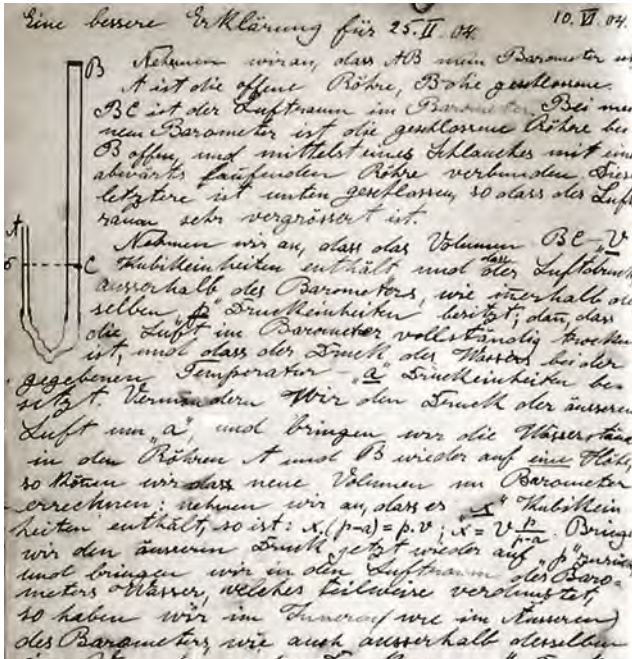 Eine bessere Erklärung für 25.II.04. 10.VI.04.
B Nehmen wir an, dass AB mein Barometer
A ist die offene Röhre, B die geschlossene.
BC ist der Luftraum im Barometer. Bei mei
nem Barometer ist die geschlossene Röhre bei
B offen, und mittelst eines Schlauches mit eine
abwärts laufenden Röhre verbunden. Diese
letztere ist unten geschlossen, so dass der Luft
raum sehr vergrössert ist.
A Nehmen wir an, dass das Volumen BC – "V"
б C Kubikeinheiten enthält, und dass der Luftdruck
ausserhalb des Barometers, wie innerhalb de
selben, "p" Druckeinheiten besitzt; dann, dass
die Luft im Barometer vollständig trocken
ist, und dass der Druck des Wassers bei der
gegebenen Temperatur – "a" Druckeinheiten be-
sitzt. Vermindern Wir den Druck der äusseren
Luft um "a", und bringen wir die Wasserstände
in den Röhren A und B wieder auf eine Höhe,
so können wir dass neue Volumen im Barometer
errechnen: nehmen wir an, dass es "x" Kubikein
heiten enthält, so ist: x.(p-a) = p.v; x = V p/p-a. Bringe
wir den äusseren Druck jetzt wieder auf "p" zurück
und bringen wir in den Luftraum des Baro-
meters Wasser, welches teilweise verdunstet,
so haben wir im Inneren (wie im Äusseren)
des Barometers, wie auch ausserhalb desselben